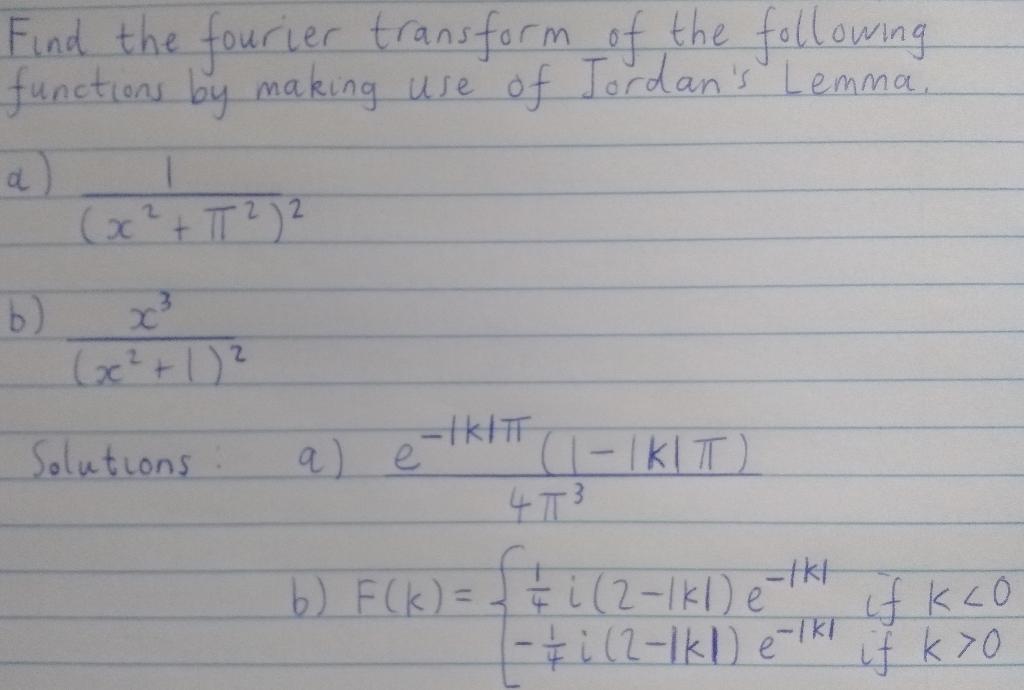 Find the fourier transform of the following
functions by making use of Jordan's Lemma.
a) 1 / (x² + π²)²
b) x³ / (x² + 1)²
Solutions: a) e^(-|k|π) (1 - |k|π) / 4π³
b) F(k) = { ¼ i (2 - |k|) e^(-|k|) if k < 0
-¼ i (2 - |k|) e^(-|k|) if k > 0